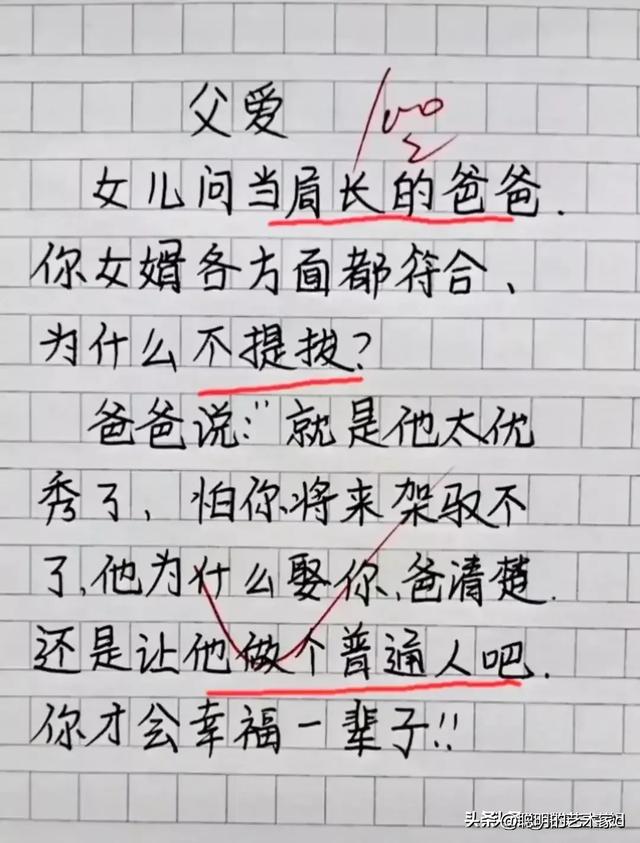 父爱 100
女儿问当局长的爸爸.
你女婿各方面都符合、
为什么不提拔?
爸爸说:"就是他太优
秀了、怕你将来架驭不
了,他为什么娶你,爸清楚.
还是让他做个普通人吧.
你才会幸福一辈子!!
头条 @聪明的艺术家Jd